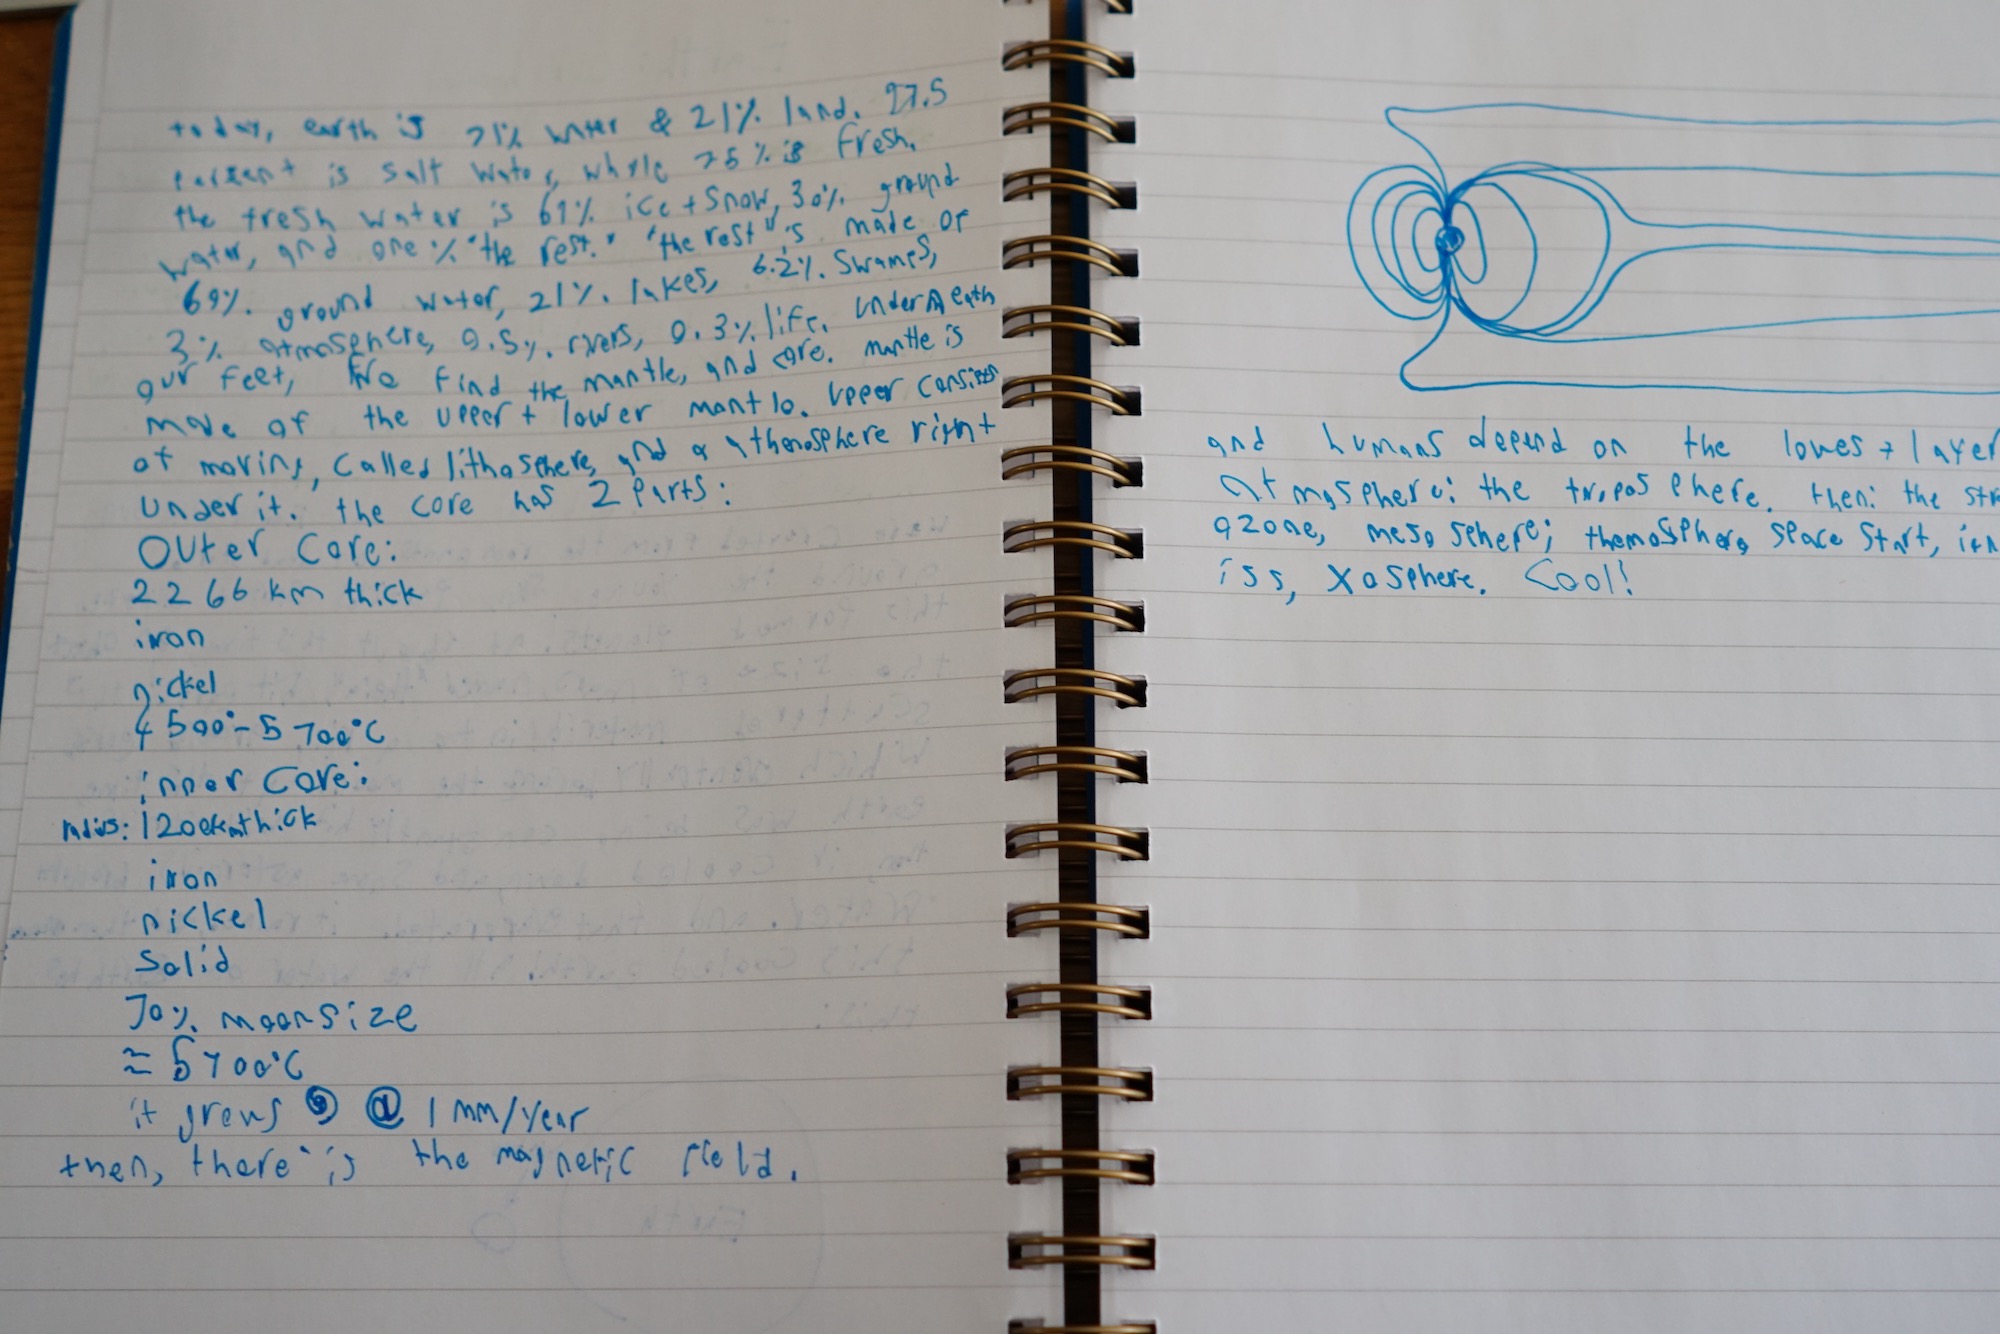 today, earth is 71% water & 21% land. 97.5
percent is salt water, while 25% is fresh.
the fresh water is 69% ice + snow, 30% ground
water, and one % "the rest." "the rest" is made of
69% ground water, 21% lakes, 6.2% swamps,
3% atmosphere, 0.5% rivers, 0.3% life. underneath
our feet, we find the mantle, and core. mantle is
made of the upper + lower mantle. upper consists
of moving, called lithosphere, and asthenosphere right
under it. the core has 2 parts:
outer core:
2266 km thick
iron
nickel
4500°-5700°C
inner core:
radius: 1200km thick
iron
nickel
solid
70% moon size
≈ 5700°C
it grows @ 1 mm/year
then, there is the magnetic field.
and humans depend on the lowest layer
atmosphere: the troposphere. then: the str
ozone, mesosphere; themosphere space start, ion
iss, xosphere. Cool!